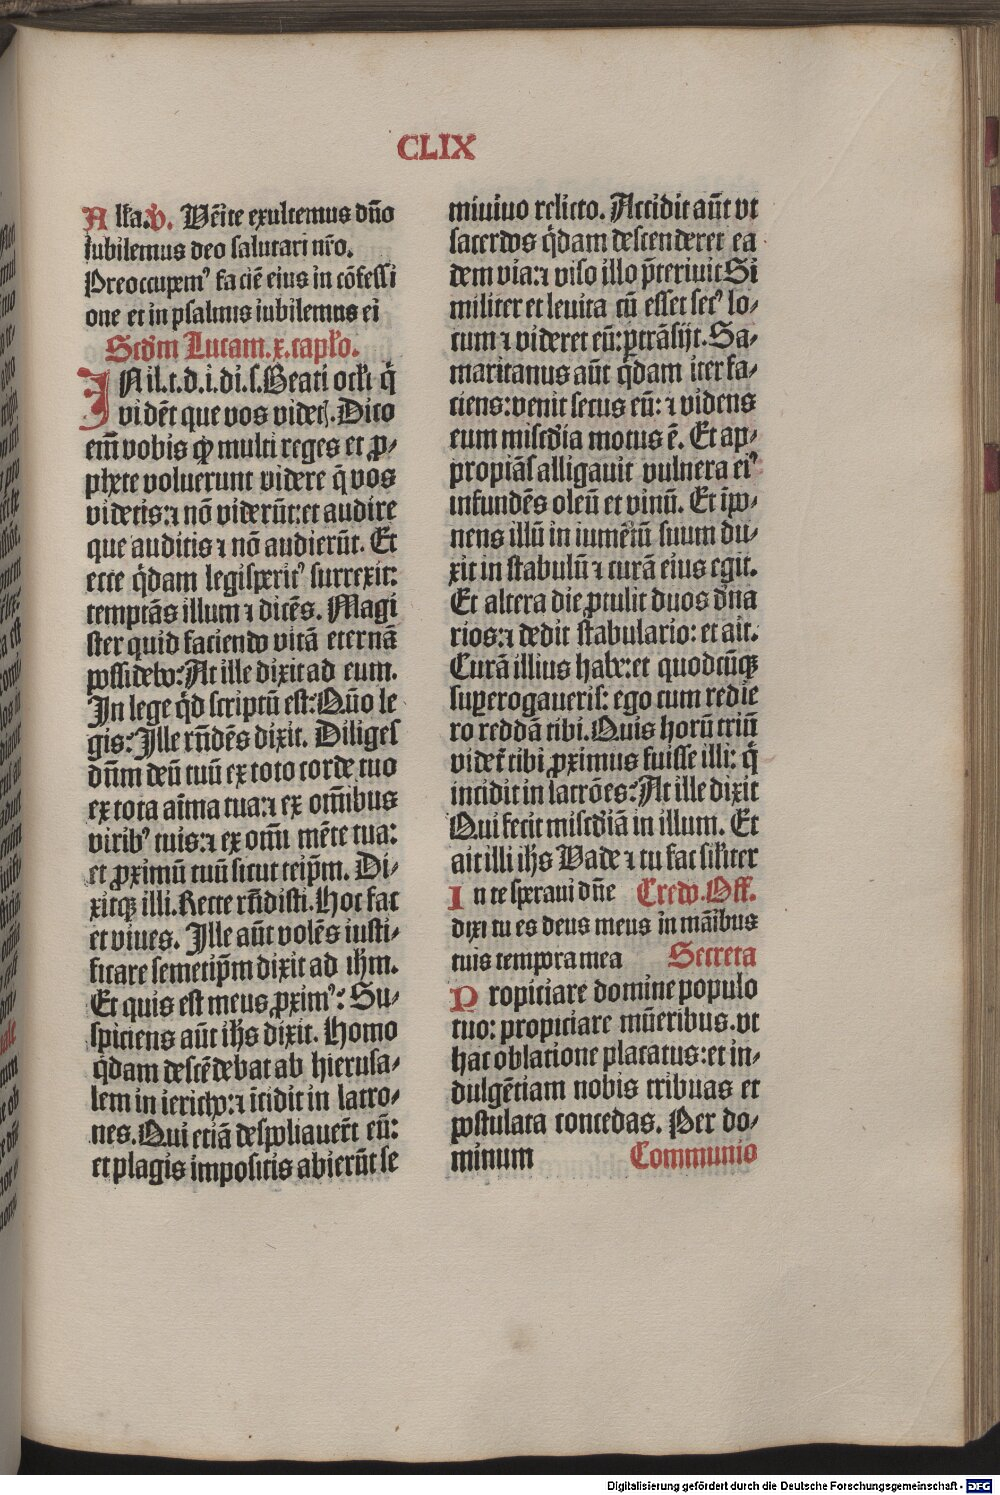 CLIX
Alľa. v̇. Vēite exultemus dn̄o
iubilemus deo salutari nr̄o.
Preoccupemꝰ faciē eius in cōfessi
one et in psalmis iubilemus ei
Scd̄m Lucam.x.capľo.
IN il.t.d.i.di.s.Beati oc̄li q̇
vidēt que vos videtꝭ.Dico
em̄ vobis ꝙ multi reges et ꝓ-
phete voluerunt videre q̄ vos
videtis:⁊ nō viderūt:et audire
que auditis ⁊ nō audierūt. Et
ecce q̇dam legisperitꝰ surrexit:
temptās illum ⁊ dicēs. Magi
ster quid faciendo vitā eternā
possidebo? At ille dixit ad eum.
In lege q̇d scriptū est? Quō le
gis? Ille rn̄dēs dixit. Diliges
dn̄m deū tuū ex toto corde tuo
ex tota aīma tua:⁊ ex om̄ibus
viribꝰ tuis:⁊ ex om̄i mēte tua:
et ꝓximū tuū sicut teip̄m. Di-
xitqꝫ illi.Recte rn̄disti.Hoc fac
et viues. Ille aūt volēs iusti-
ficare semetip̄m dixit ad ih̄m.
Et quis est meus ꝓximꝰ? Su-
spiciens aūt ih̄s dixit. Homo
q̇dam descēdebat ab hierusa-
lem in iericho:⁊ īcidit in latro-
nes.Qui etiā despoliauer̄t eū:
et plagis impositis abierūt se
miuiuo relicto. Accidit aūt vt
sacerdos q̇dam descenderet ea
dem via:⁊ viso illo p̄teriuit Si
militer et leuita cū esset secꝰ lo-
cum ⁊ videret eū:ꝑtrāsijt. Sa-
maritanus aūt q̇dam iter fa-
ciens:venit secus eū: ⁊ videns
eum misc̄dia motus ē. Et ap-
propiās alligauit vulnera eiꝰ
infundēs oleū et vinū. Et īpo-
nens illū in iumētū suum du-
xit in stabulū ⁊ curā eius egit.
Et altera die ꝓtulit duos dn̄a
rios:⁊ dedit stabulario: et ait.
Curā illius habe:et quodcūqꝫ
superogaueris: ego cum redie
ro reddā tibi.Quis horū triū
videt̄ tibi ꝓximus fuisse illi: q̇
incidit in latrōes? At ille dixit
Qui fecit misc̄diā in illum. Et
ait illi ih̄s Vade ⁊ tu fac siľiter
In te speraui dn̄e Credo. Off.
dixi tu es deus meus in māibus
tuis tempora mea Secreta
Propiciare domine populo
tuo: propiciare mūeribus.vt
hac oblatione placatus:et in-
dulgētiam nobis tribuas et
postulata concedas. Per do-
minum Communio
Digitalisierung gefördert durch die Deutsche Forschungsgemeinschaft - DFG